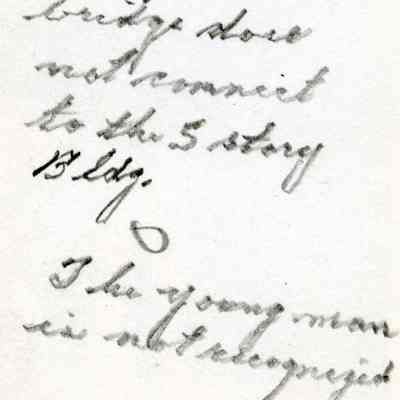 bridge does
not connect
to the 5 story
Bldg.
The young man
is not recognized